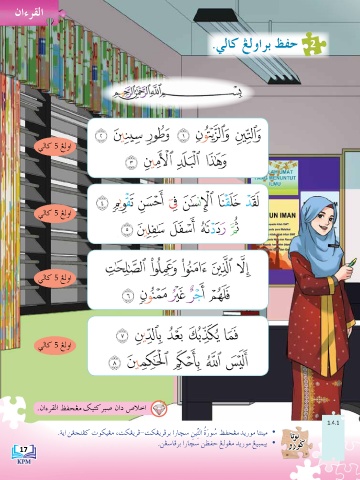 القرءان
2 حفظ براولڠ كالي.
بِسْمِ اللَّهِ الرَّحْمَٰنِ الرَّحِيمِ
وَٱلتِّينِ وَٱلزَّيْتُونِ ١ وَطُورِ سِينِينَ ٢
وَهَٰذَا ٱلْبَلَدِ ٱلْأَمِينِ ٣
اولڠ 5 كالي
لَقَدْ خَلَقْنَا ٱلْإِنسَٰنَ فِىٓ أَحْسَنِ تَقْوِيمٍ ٤
ثُمَّ رَدَدْنَٰهُ أَسْفَلَ سَٰفِلِينَ ٥
اولڠ 5 كالي
إِلَّا ٱلَّذِينَ ءَامَنُوا۟ وَعَمِلُوا۟ ٱلصَّٰلِحَٰتِ
فَلَهُمْ أَجْرٌ غَيْرُ مَمْنُونٍ ٦
اولڠ 5 كالي
فَمَا يُكَذِّبُكَ بَعْدُ بِٱلدِّينِ ٧
أَلَيْسَ ٱللَّهُ بِأَحْكَمِ ٱلْحَٰكِمِينَ ٨
اولڠ 5 كالي
MENUNTUT
ILMU
UN IMAN
اخلاص دان صبر كتيک مڠحفظ القرءان.
1.4.1
نوتا
ڬورو
• مينتا موريد مڠحفظ سورة التين سچارا برڤريڠکت-ڤريڠکت، مڠيکوت کڤنجڠن اية.
• بيمبيڠ موريد مڠولڠ حفظن سچارا برڤاسڠن.
17
KPM